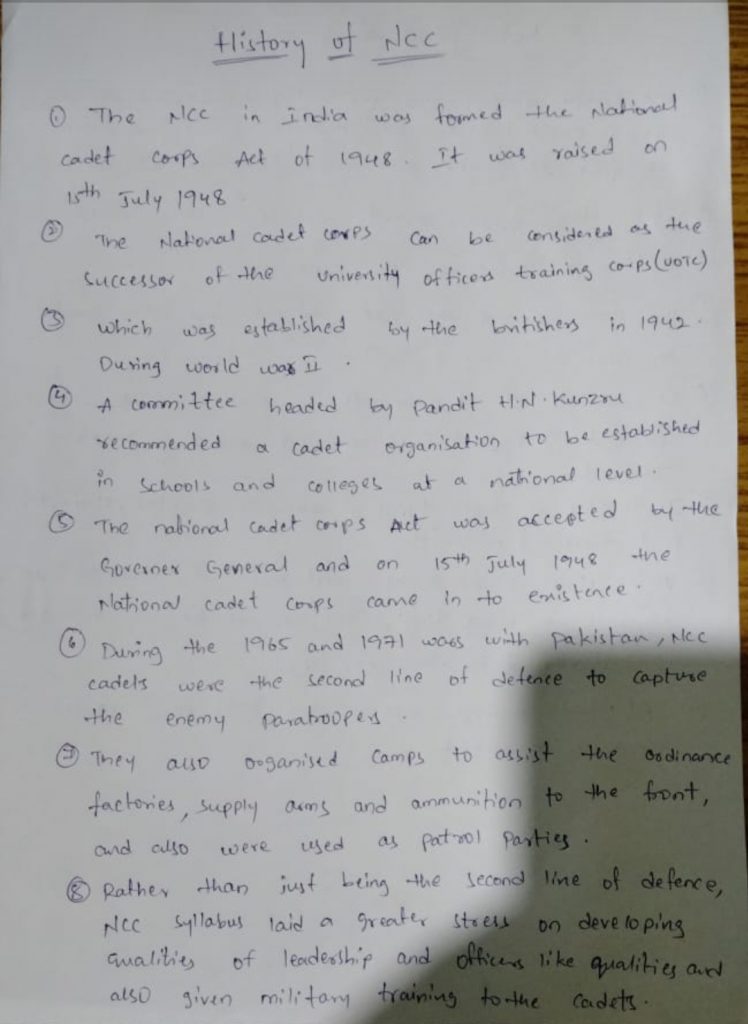 History of NCC
① The NCC in India was formed the National
cadet corps Act of 1948. It was raised on
15th July 1948
② The National cadet corps can be considered as the
successor of the university officers training corps (UOTC)
③ which was established by the britishers in 1942.
During world war II.
④ A committee headed by Pandit H.N. Kunzru
recommended a cadet organisation to be established
in schools and colleges at a national level.
⑤ The national cadet corps Act was accepted by the
Governer General and on 15th July 1948 the
National cadet corps came in to existence.
⑥ During the 1965 and 1971 wars with pakistan, NCC
cadets were the second line of defence to capture
the enemy paratroopers.
⑦ They also organised camps to assist the ordinance
factories, supply arms and ammunition to the front,
and also were used as patrol parties.
⑧ Rather than just being the second line of defence,
NCC syllabus laid a greater stress on developing
qualities of leadership and officers like qualities and
also given military training to the cadets.